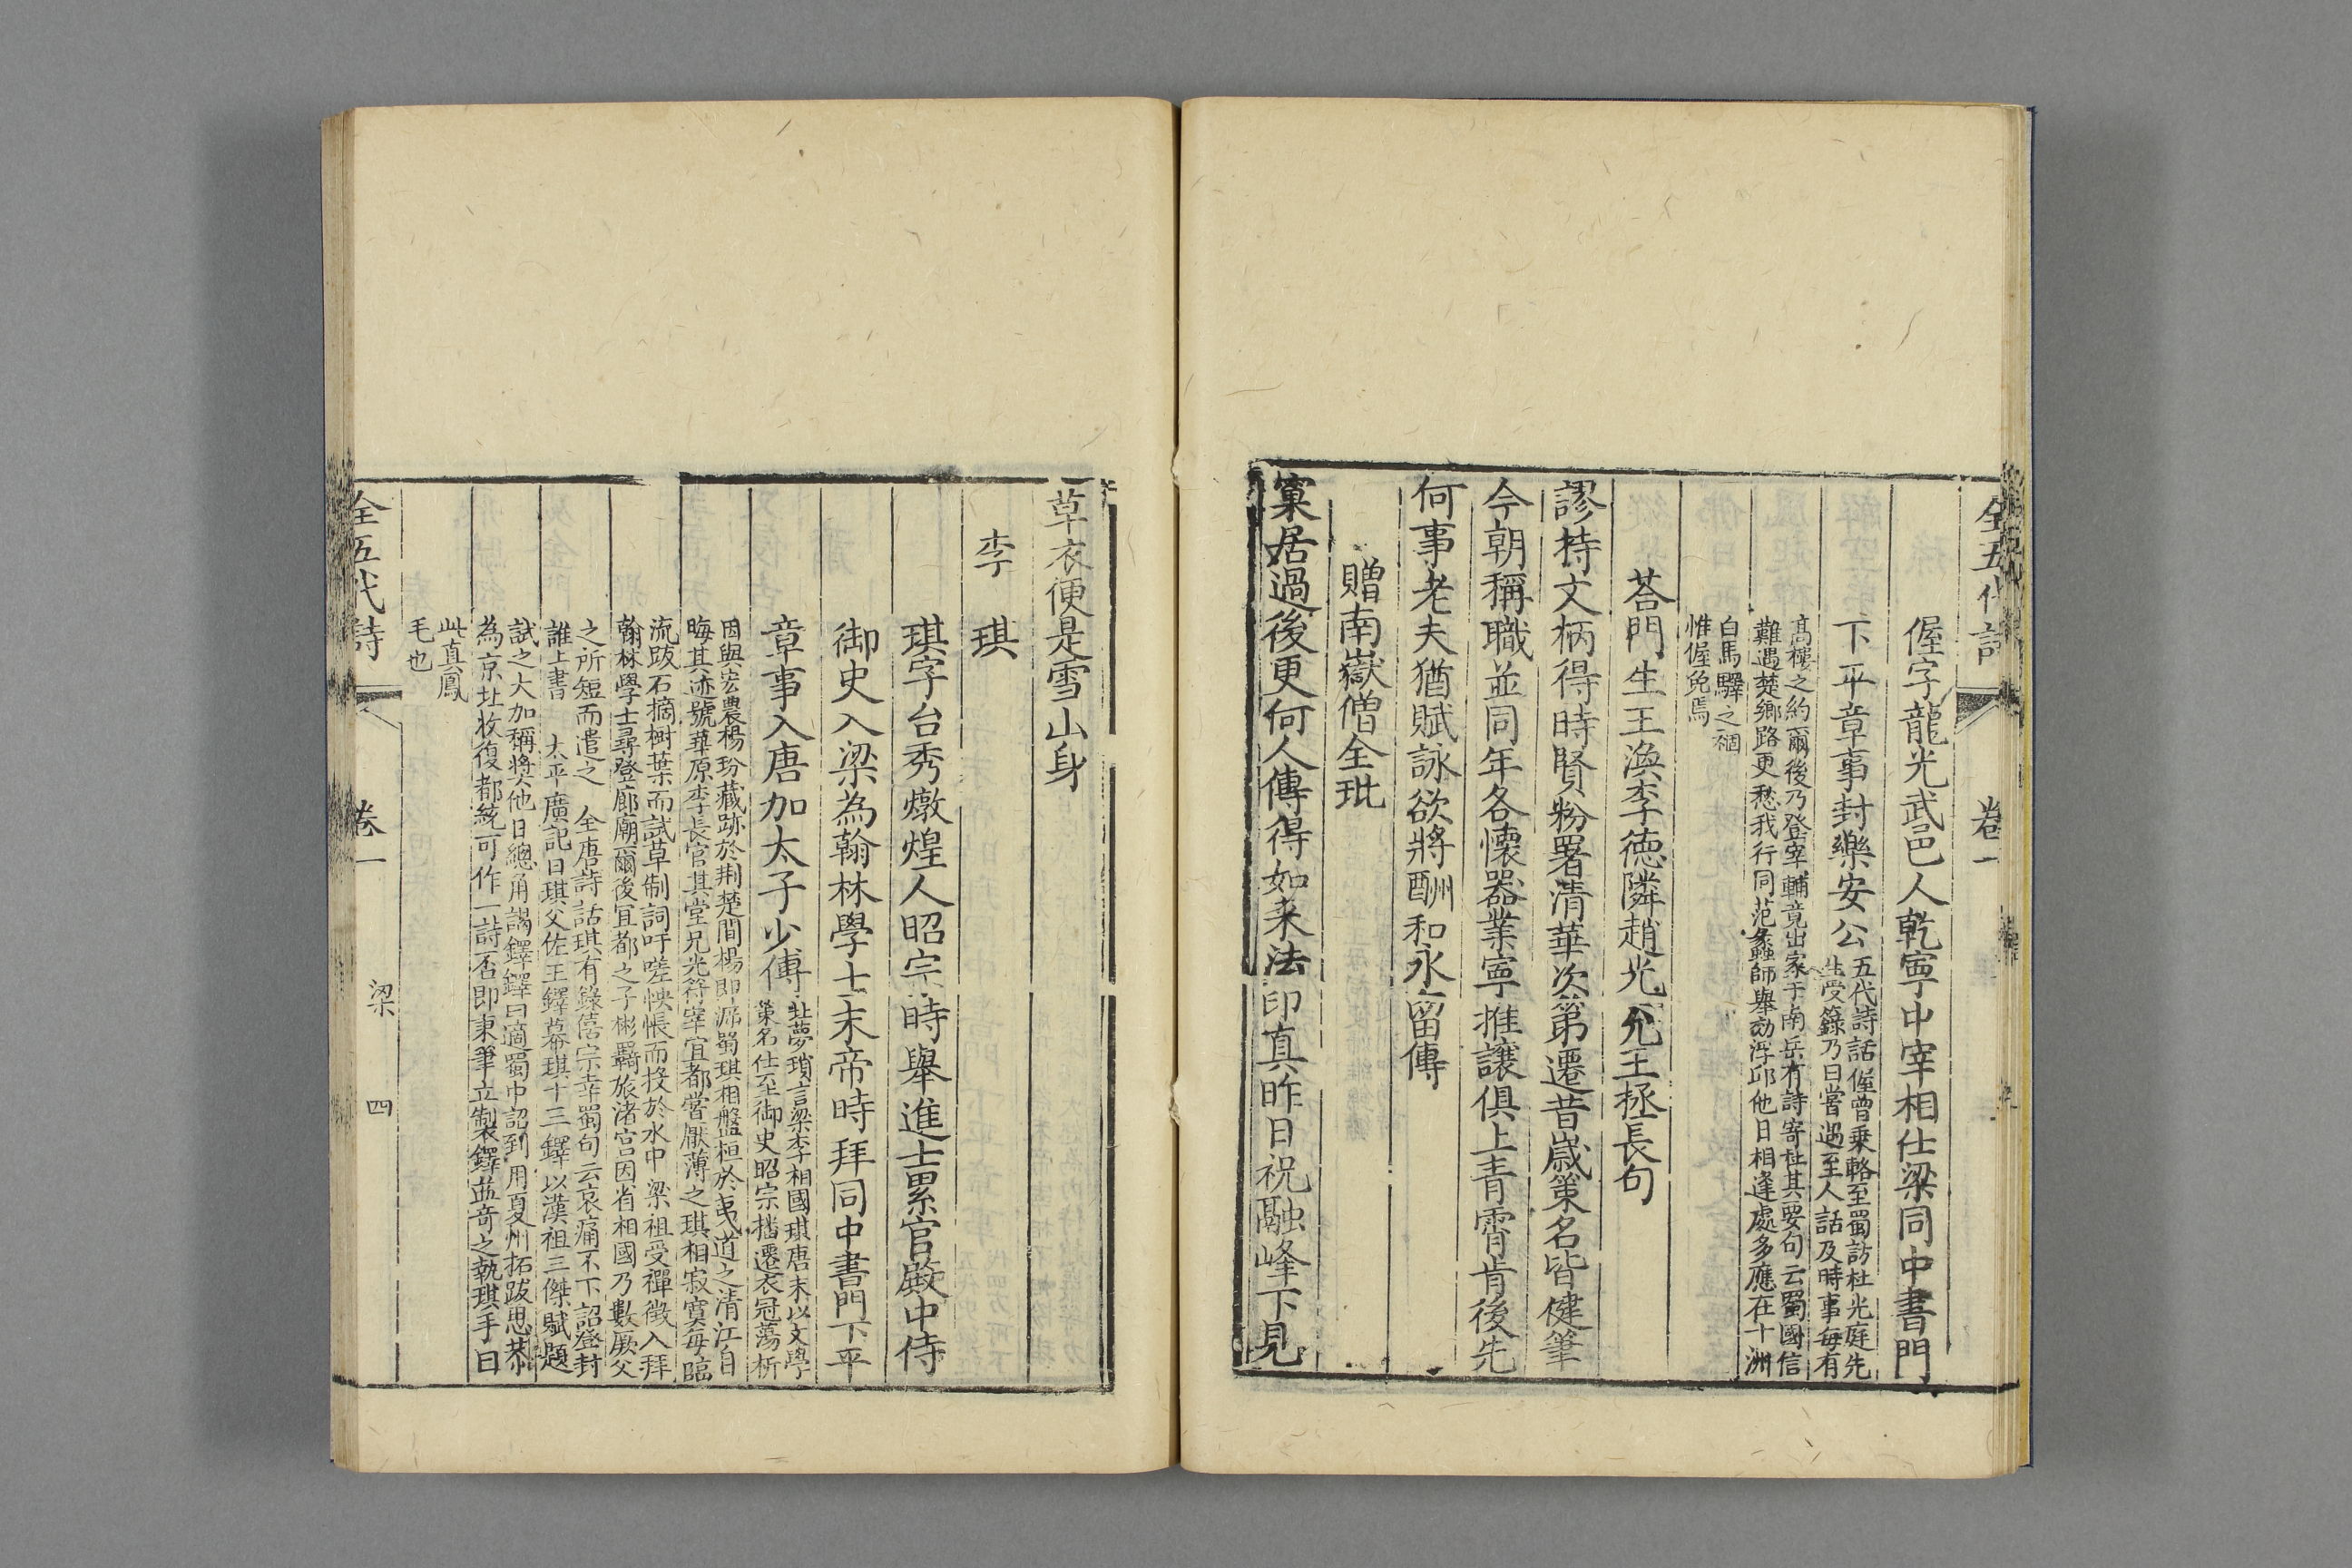 全五代詩
卷一
偓字龍光武邑人乾寧中宰相仕梁同中書門
下平章事封樂安公
五代詩話偓曾乗輅至蜀訪杜光庭先
生受籙乃曰嘗遇至人話及時事每有
高樓之約爾後乃登宰輔竟出家于南岳有詩寄杜其要句云蜀國信
難遇楚鄉路更愁我行同范蠡師舉効浮邱他日相逢處多應在十洲
白馬驛之禍
惟偓免焉
荅門生王渙李徳隣趙光允王拯長句
謬持文柄得時賢粉署清華次第遷昔歲策名皆健筆
今朝稱職並同年各懷器業寧推讓俱上青霄肯後先
何事老夫猶賦詠欲將酬和永留傳
贈南嶽僧全玭
窠居過後更何人傳得如来法印真昨日祝融峰下見
草衣便是雪山身
李琪
琪字台秀燉煌人昭宗時舉進士累官殿中侍
御史入梁為翰林學士末帝時拜同中書門下平
章事入唐加太子少傅
北夢瑣言梁李相國琪唐末以文學
策名仕至御史昭宗播遷衣冠蕩析
因與宏農楊玢藏跡於荆楚間楊即泝蜀琪相盤桓於夷道之清江自
晦其迹號華原李長官其堂兄光符宰宜都嘗厭薄之琪相寂寞每臨
流跋石摘樹葉而試草制詞吁嗟怏悵而投於水中梁祖受禪徵入拜
翰林學士尋登廊廟爾後宜都之子彬羇旅渚宫因省相國乃數厥父
之所短而遣之　全唐詩話琪有錄僖宗幸蜀句云哀痛不下詔登封
誰上書　太平廣記曰琪父佐王鐸幕琪十三鐸以漢祖三傑賦題
試之大加稱將奕他日總角謁鐸鐸曰適蜀中詔到用夏州拓跋思恭
為京北收復都統可作一詩否即秉筆立製鐸益奇之執琪手曰
此真鳳
毛也
全五代詩
卷一
梁
四